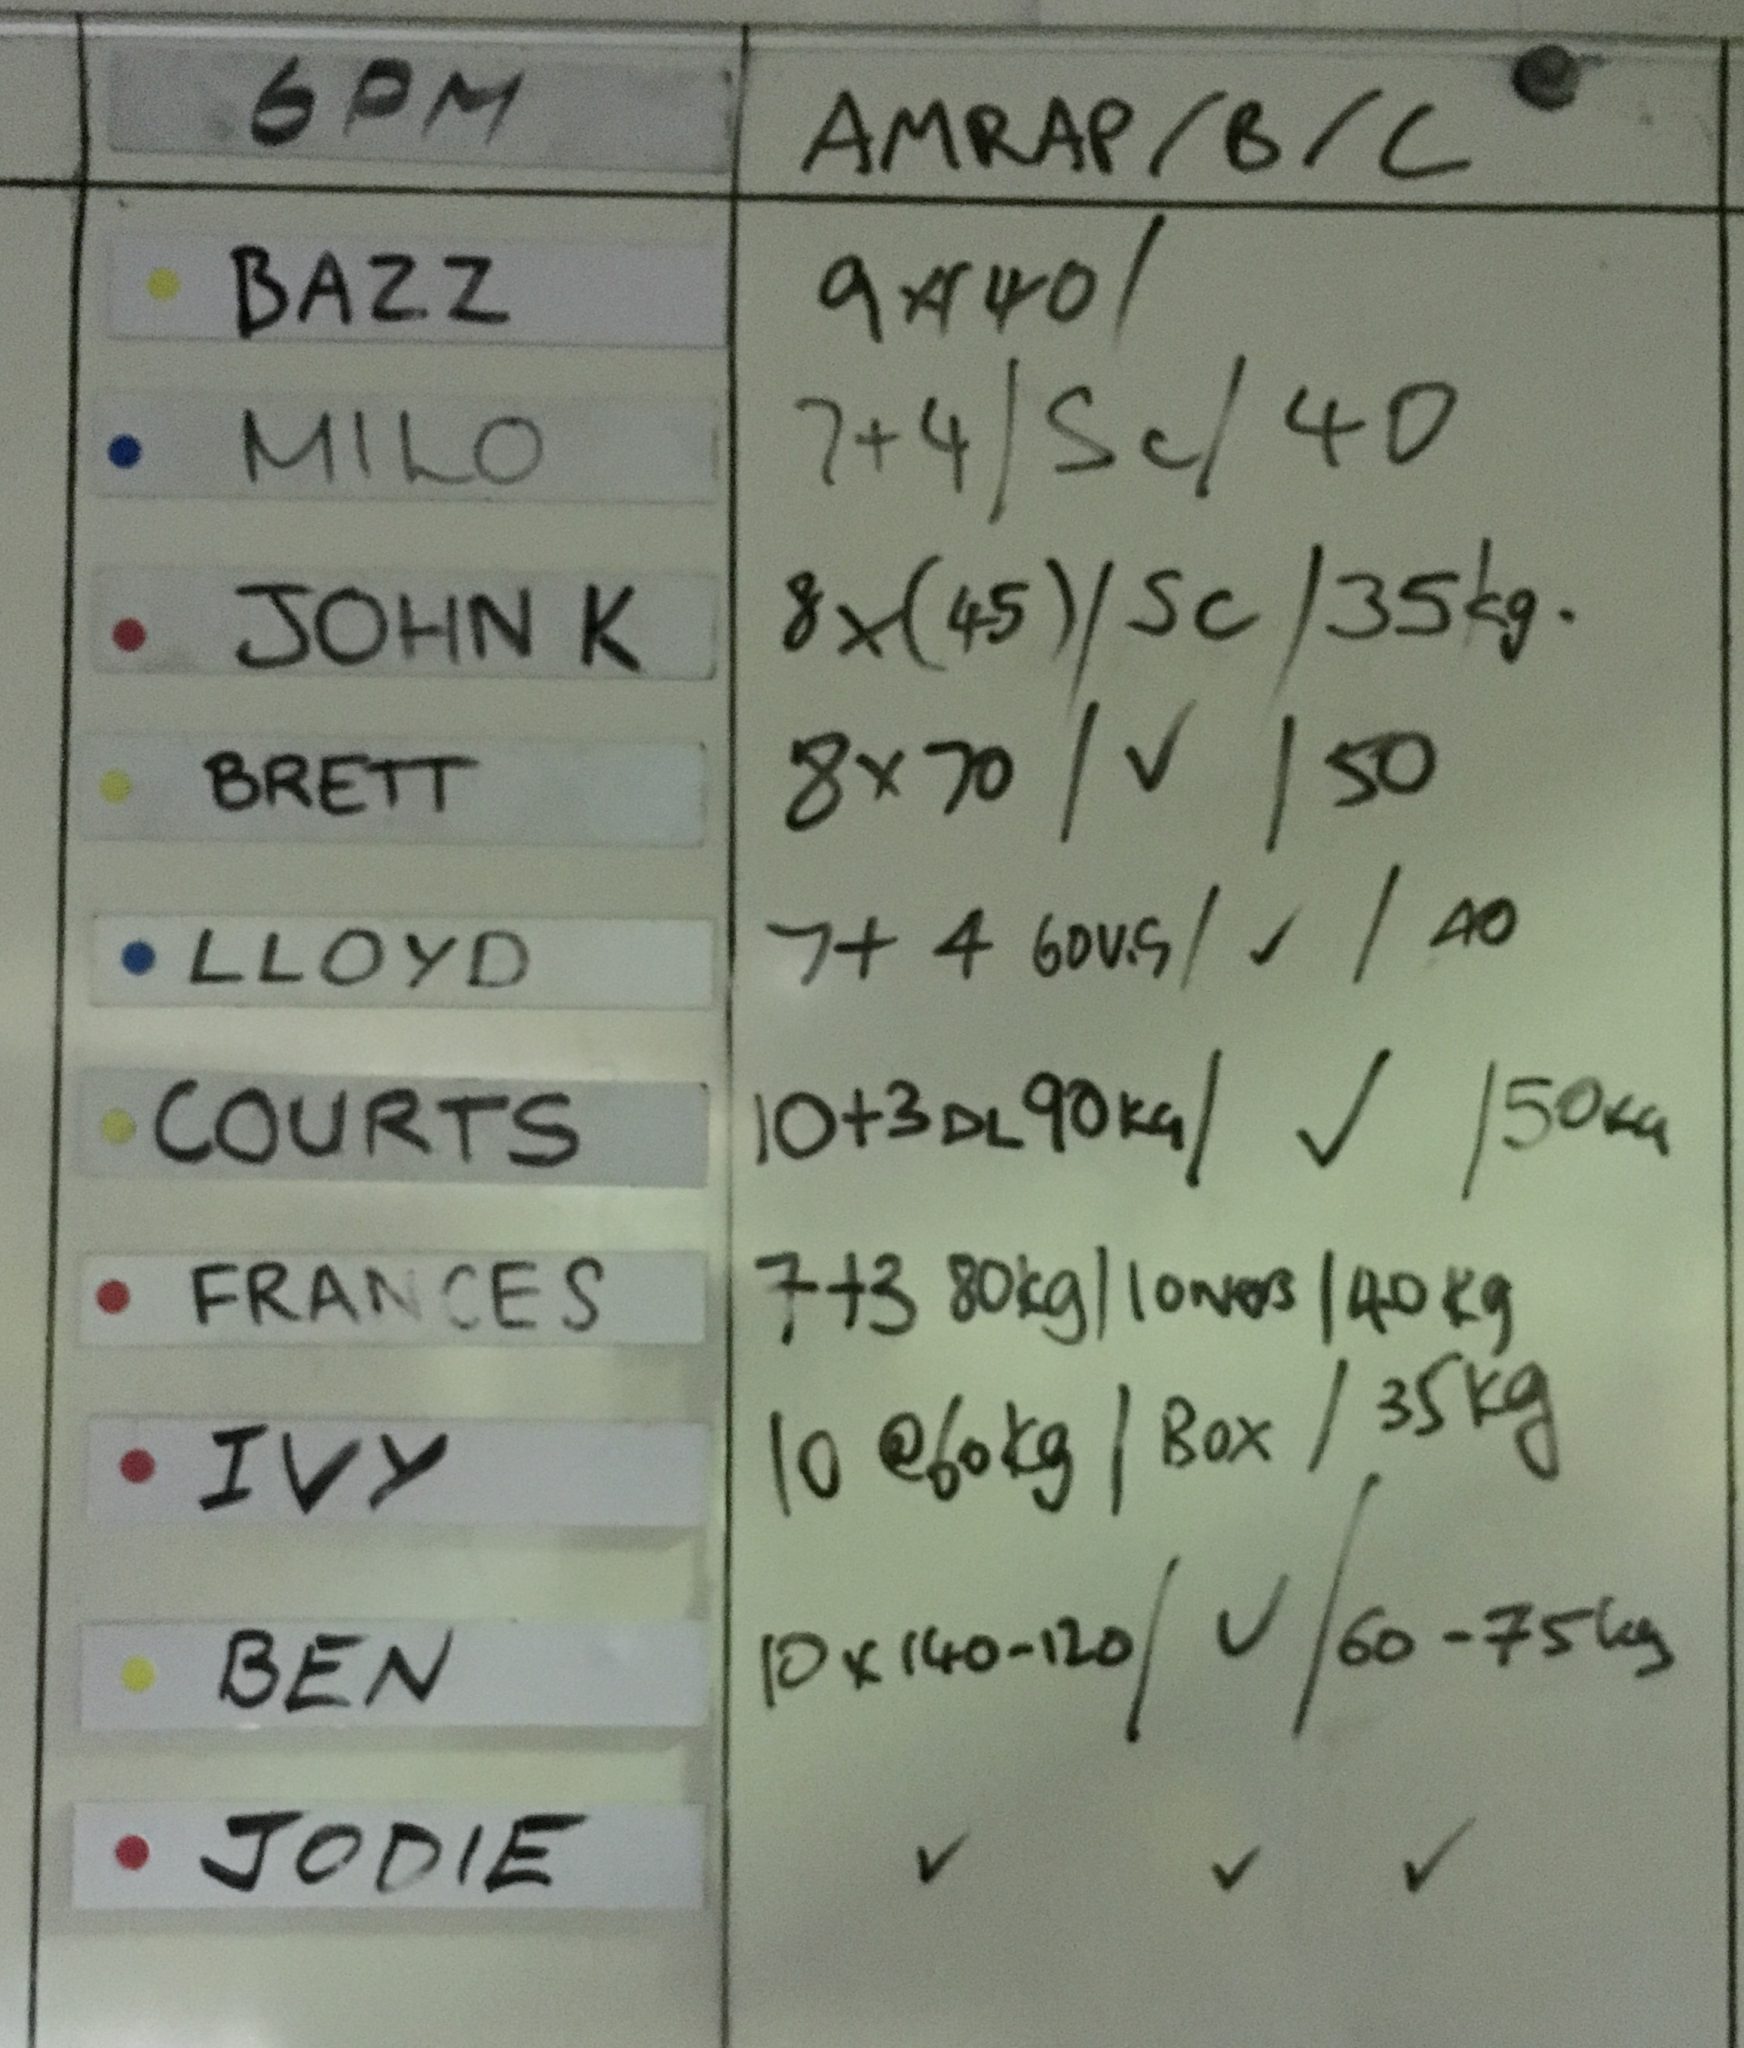 6PM AMRAP/B/C
BAZZ 9 x 40/
MILO 7+4/Sc/40
JOHN K 8x(45)/SC/35kg.
BRETT 8x70/✓/50
LLOYD 7+4 60 /✓/40
COURTS 10+3 DL 90KG/✓/50KG
FRANCES 7+3 80kg/ /40kg
IVY 10 @60kg/BOX/35kg
BEN 10x140-120/✓/60-75kg
JODIE ✓ ✓ ✓